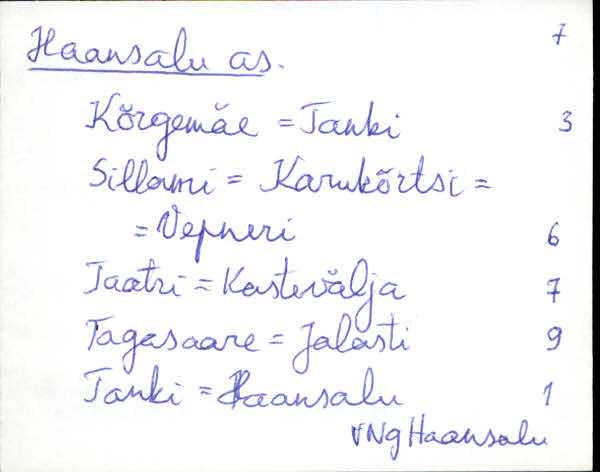 Haansalu as. 7
Kõrgemäe = Tanki 3
Sillami = Karukõrtsi =
= Vepneri 6
Taatri = Kastevälja 7
Tagasaare = Jalasti 9
Tanki = Haansalu 1
VNg Haansalu